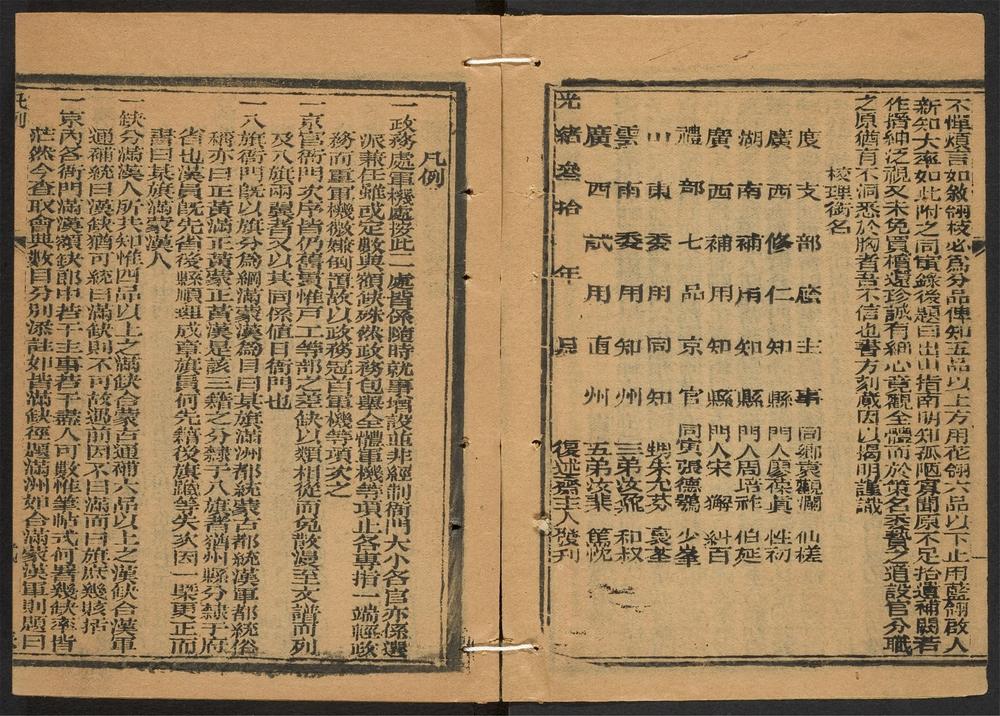 不憚煩言如敘翎枝必爲分品俾知五品以上方用花翎六品以下止用藍翎啟人
新知大率如此附之同寅錄後題曰出山指南明知孤陋寡聞原不足拾遺補闕若
作搢紳泛視又未免買櫝還珍誠有細心竟觀全體而於策名委贄之道設官分職
之原猶有不洞悉於胸者吾不信也書方刻蕆因以揭明謹識
校理銜名
度支部 主事 同鄉袁觀瀾 仙槎
廣西修仁知縣 門人廖葆真 性初
湖南補用知縣 門人周培祚 伯延
廣西補用知縣 門人宋獬 斜百
禮部七品京官 同寅張德鶚 少峯
山東委用同知 朱尤芬 袁基
雲南委用知州 三弟汝飛 和叔
廣西試用直州 五弟汝棐 篤忱
光緒叁拾 年 月 復述齋主人發刊
凡例
一政務處軍機處按此二處皆係隨時就事增設並非經制衙門大小各官亦係選
派兼任雖或定數與額缺殊然政務包舉全體軍機等項止各專指一端輕政
務而重軍機微嫌倒置故以政務冠首軍機等項次之
一京官衙門次序皆仍舊貫惟戶工等部之差缺以類相從而免散漫至文譜而列
及八旗兩翼者又以其同係值日衙門也
一八旗衙門旣以旗分爲綱滿蒙漢爲目曰某旗滿洲都統蒙古都統漢軍都統俗
稱亦曰正黃滿正黃蒙正黃漢是該三籍之分隸于八旗者猶州縣分隸于府
省也漢員旣先省後縣順理成章旗員何先籍後旗躐等失次因一槩更正而
書曰某旗滿蒙漢人
一缺分滿漢人所共知惟四品以上之滿缺合蒙古通補六品以上之漢缺合漢軍
通補統曰漢缺猶可統曰滿缺則不可故過前因不曰滿而曰旗庶幾賅括
一京內各衙門滿漢額缺郎中若干主事若干盡人可數惟筆帖式何署幾缺率皆
茫然今查取會典數目分別添註如皆滿缺徑題滿洲如合滿蒙漢軍則題曰
凡例